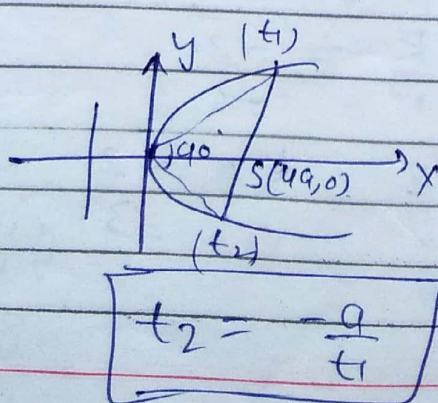 y (t1)
90°
S(4a,0) X
(t2)
t2 = -a/t1